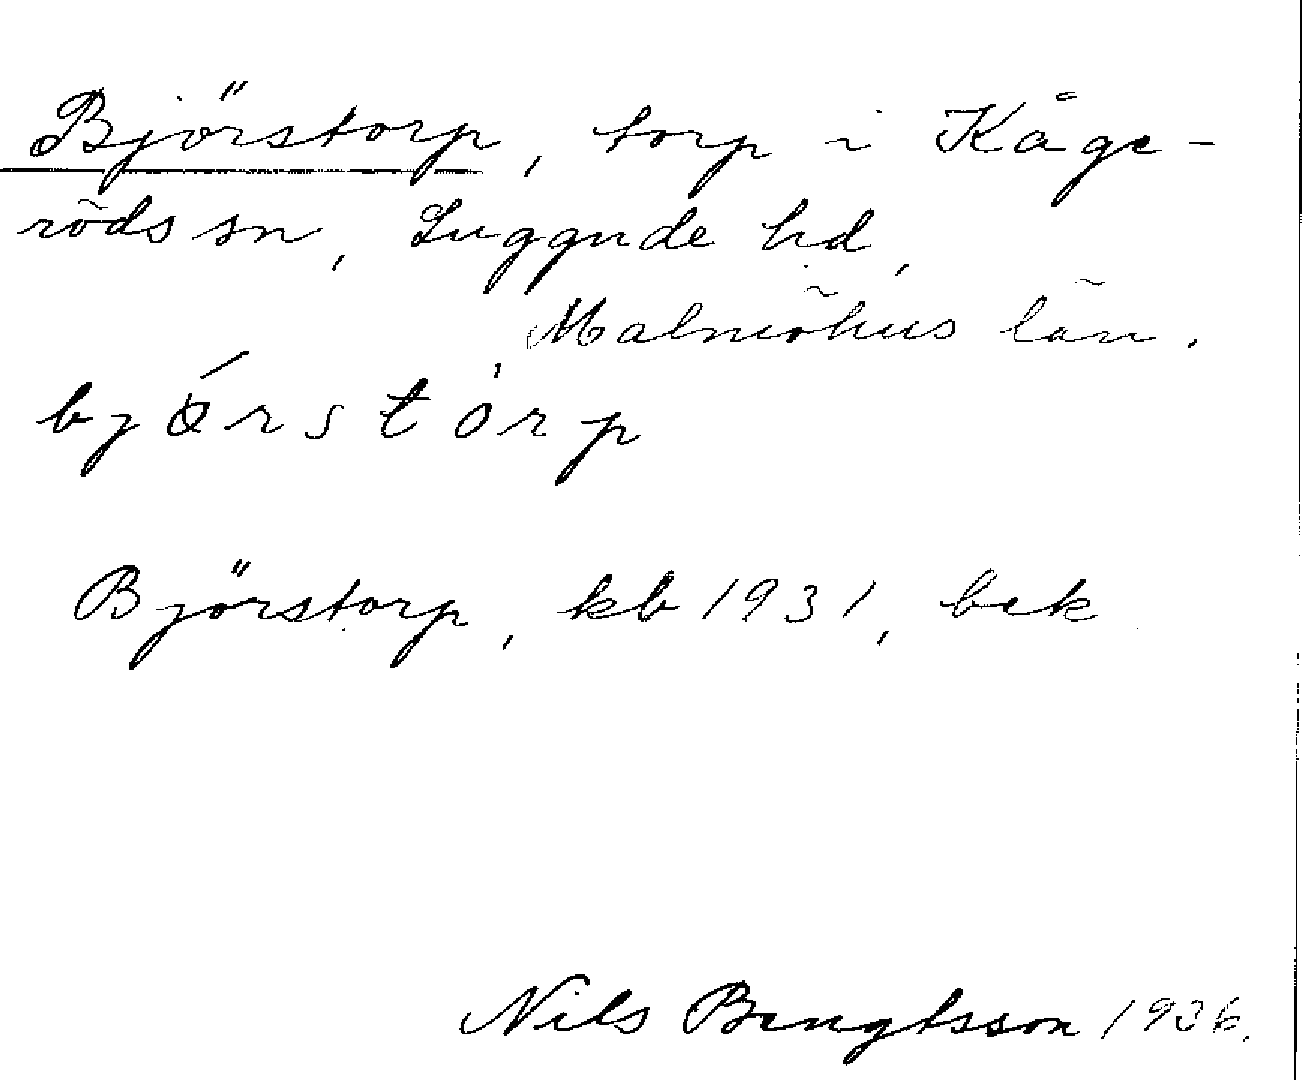 Björstorp, torp i Kåge-
röds sn, Luggude hd,
Malmöhus län.
bjǿrstòrp
Björstorp, kb 1931, bek
Nils Bengtsson 1936.